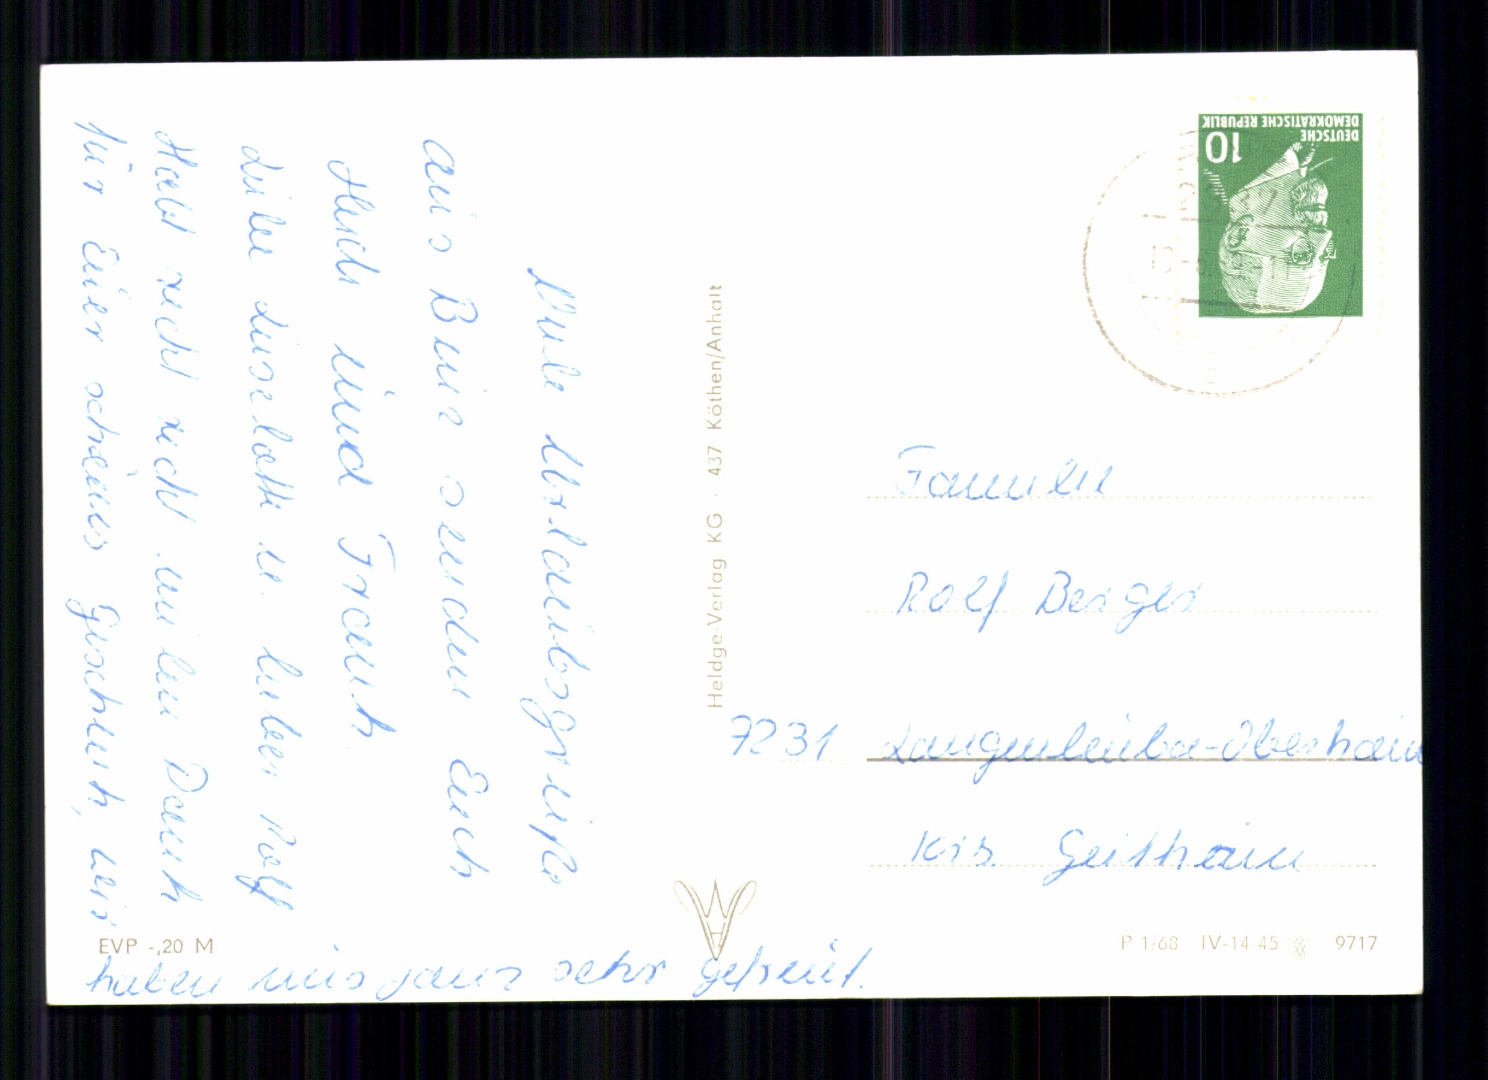 Viele Urlaubsgrüße
aus Binz senden Euch
Heidi und Frank.
Liebe Liselotte u. lieber Rolf
Habt recht recht vielen Dank
für Euer schönes Geschenk, wir
haben uns ganz sehr gefreut.
Heldge-Verlag KG · 437 Köthen/Anhalt
DEUTSCHE
DEMOKRATISCHE REPUBLIK
10
Familie
Rolf Berger
7231 Langenleuba-Oberhain
Krs. Geithain
EVP -,20 M
P 1/68 IV-14-45 9717